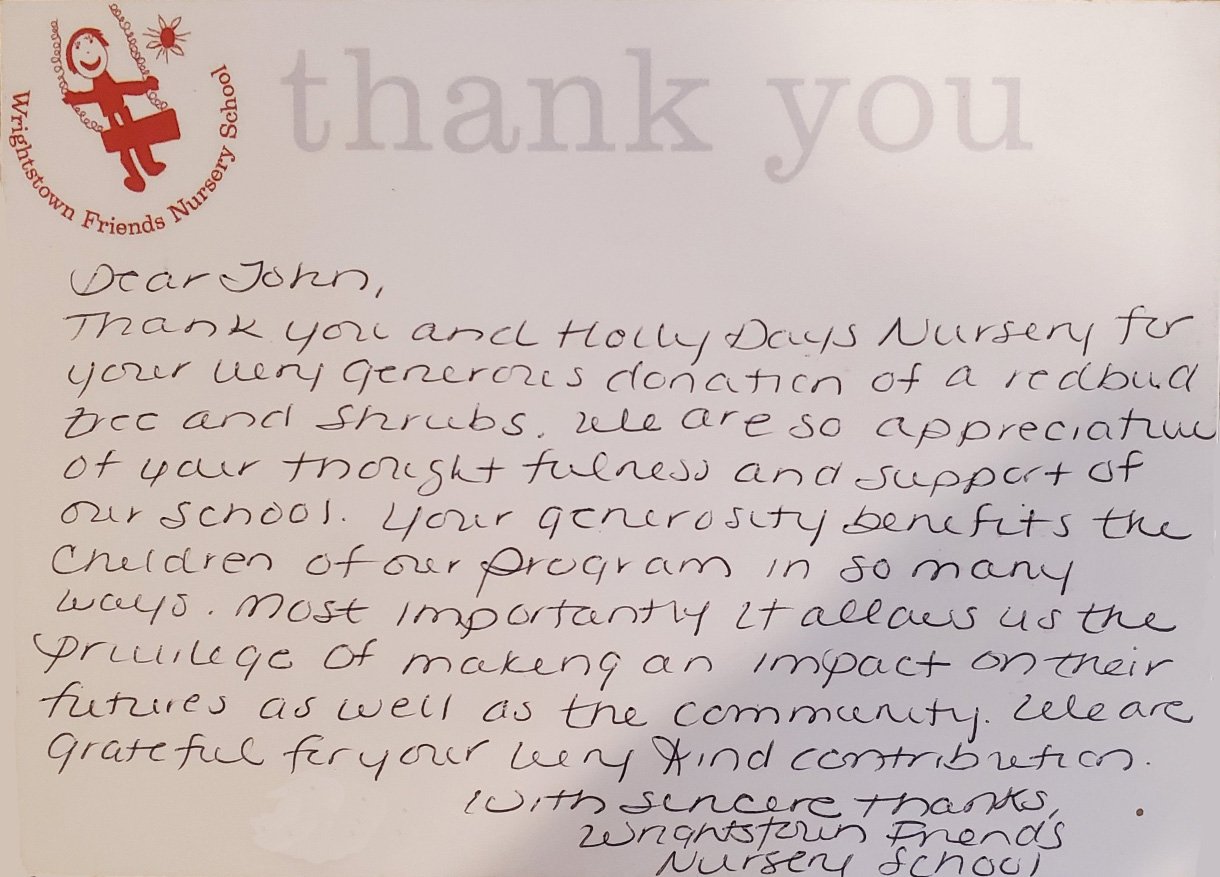 Wrightstown Friends Nursery School
thank you
Dear John,
Thank you and Holly Days Nursery for
your very generous donation of a redbud
tree and shrubs. We are so appreciative
of your thoughtfulness and support of
our school. Your generosity benefits the
children of our program in so many
ways. Most importantly it allows us the
privilege of making an impact on their
futures as well as the community. We are
grateful for your very kind contribution.
With sincere thanks,
Wrightstown Friends
Nursery School